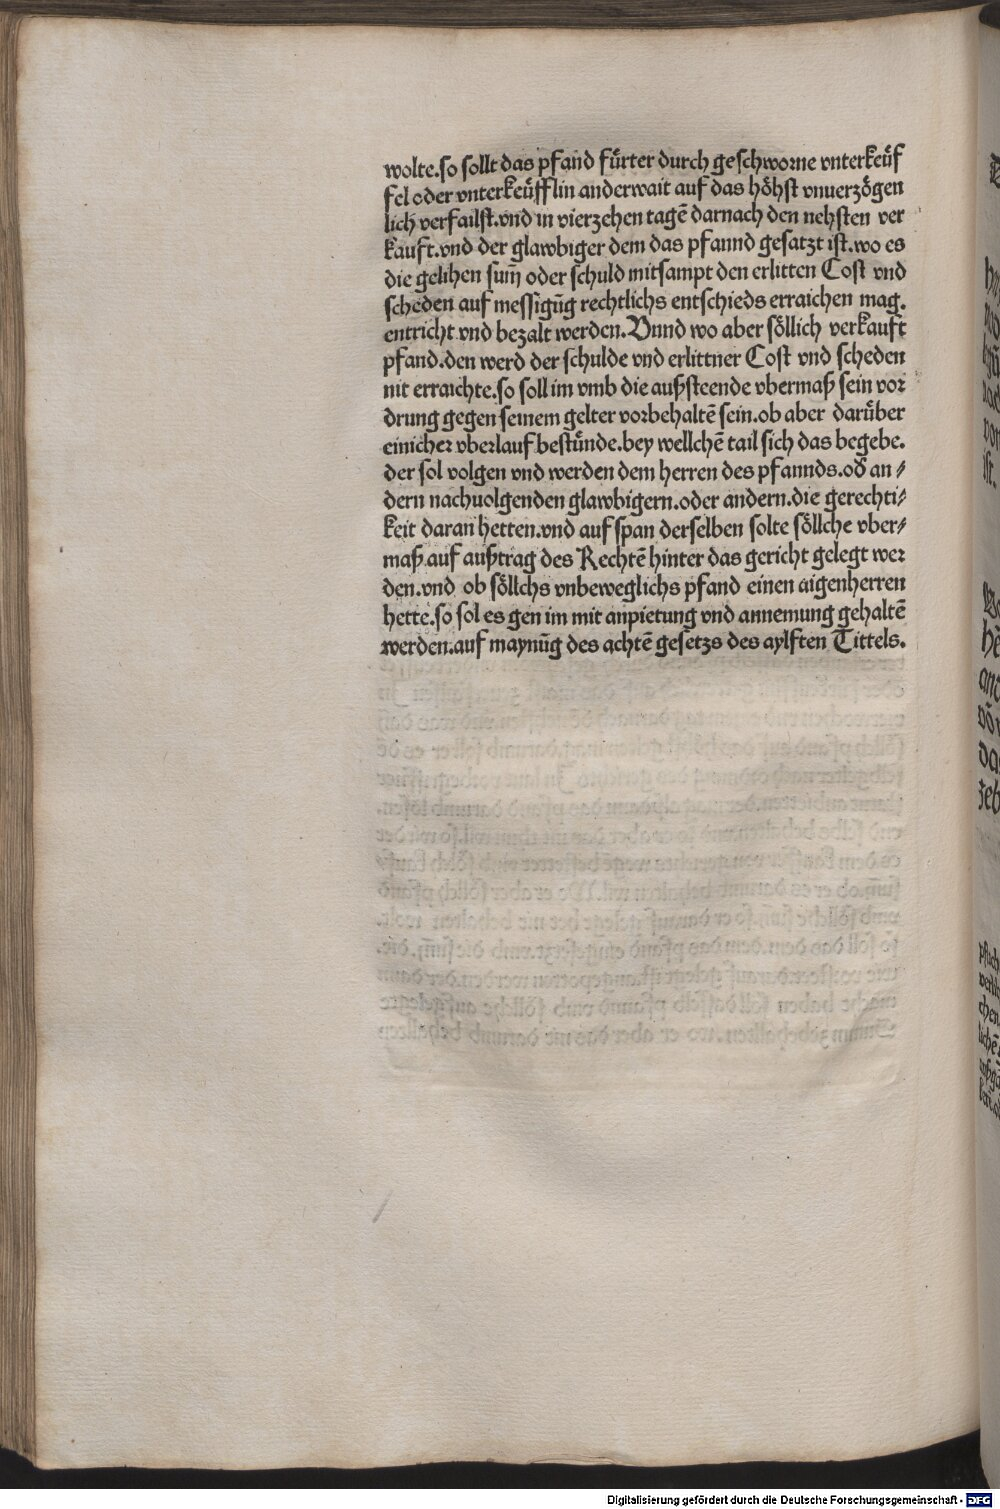 wolte.so sollt das pfand fürter durch geschworne vnterkeüf
fel oder vnterkeüfflin anderwait auf das höhst vnuerzögen
lich verfailst.vnd in vierzehen tagē darnach den nehsten ver
kauft.vnd der glawbiger dem das pfannd gesatzt ist.wo es
die gelihen sum̄ oder schuld mitsampt den erlitten Cost vnd
scheden auf messigūg rechtlichs entschieds erraichen mag.
entricht vnd bezalt werden.Vnnd wo aber söllich verkauft
pfand.den werd der schulde vnd erlittner Cost vnd scheden
nit erraichte.so soll im vmb die außsteende vbermaß sein vor
drung gegen seinem gelter vorbehaltē sein.ob aber darüber
einicher vberlauf bestünde.bey wellchē tail sich das begebe.
der sol volgen vnd werden dem herren des pfannds.od̄ an⸗
dern nachuolgenden glawbigern.oder andern.die gerechti⸗
keit daran hetten.vnd auf span derselben solte söllche vber⸗
maß.auf außtrag des Rechtē hinter das gericht gelegt wer
den.vnd ob söllchs vnbeweglichs pfand einen aigenherren
hette.so sol es gen im mit anpietung vnd annemung gehaltē
werden.auf maynūg des achtē gesetzs des aylften Tittels.
Digitalisierung gefördert durch die Deutsche Forschungsgemeinschaft - DFG